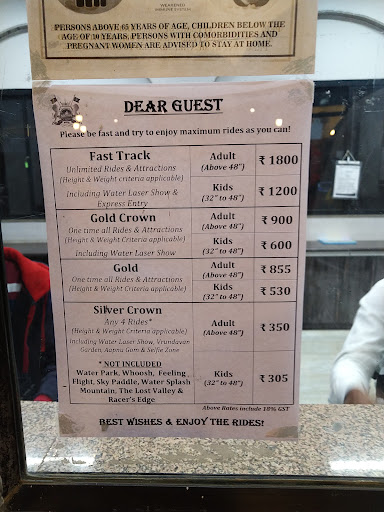 WEAKENED
IMMUNE SYSTEM
PERSONS ABOVE 65 YEARS OF AGE, CHILDREN BELOW THE
AGE OF 10 YEARS, PERSONS WITH COMORBIDITIES AND
PREGNANT WOMEN ARE ADVISED TO STAY AT HOME.
DEAR GUEST
Please be fast and try to enjoy maximum rides as you can!
Fast Track
Unlimited Rides & Attractions
(Height & Weight criteria applicable)
Including Water Laser Show &
Express Entry
Adult
(Above 48")
₹ 1800
Kids
(32" to 48")
₹ 1200
Gold Crown
One time all Rides & Attractions
(Height & Weight criteria applicable)
Including Water Laser Show
Adult
(Above 48")
₹ 900
Kids
(32" to 48")
₹ 600
Gold
One time all Rides & Attractions
(Height & Weight criteria applicable)
Adult
(Above 48")
₹ 855
Kids
(32" to 48")
₹ 530
Silver Crown
Any 4 Rides*
(Height & Weight criteria applicable)
Including Water Laser Show, Vrundavan
Garden, Aapnu Gam & Selfie Zone
* NOT INCLUDED
Water Park, Whoosh, Feeling
Flight, Sky Paddle, Water Splash
Mountain, The Lost Valley &
Racer's Edge
Adult
(Above 48")
₹ 350
Kids
(32" to 48")
₹ 305
Above Rates include 18% GST
BEST WISHES & ENJOY THE RIDES!